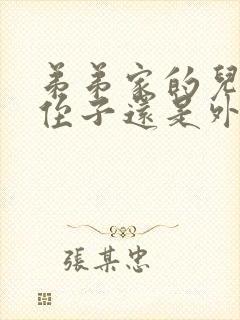 弟弟家的兒
侄子還是外
張某忠